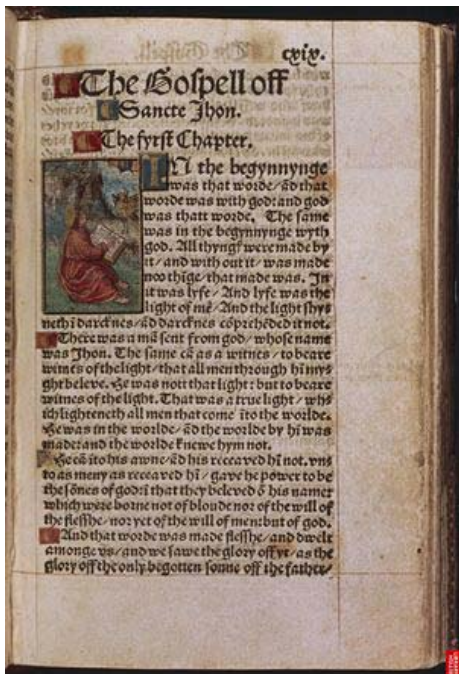 cxix.
The Gospell off
Sancte Jhon.
The fyrst Chapter.
IN the begynnynge
was that worde/ ād that
worde was with god: and god
was thatt worde. The same
was in the begynnynge wyth
god. All thyngs were made by
it/ and with out it/ was made
noo thīge/ that made was. In
it was lyfe/ And lyfe was the
light of mē/ And the light shys
neth ī darcknes/ ād darcknes cōprehēded it not.
There was a mā sent from god/ whose name
was Jhon. The same cā as a witnes/ to beare
witnes of the light/ that all men through hī mys
ght beleve. He was nott that light: but to beare
witnes of the light. That was a true light/ whs
ich lighteneth all men that come īto the worlde.
He was in the worlde/ ād the worlde by hī was
made: and the worlde knewe hym not.
He cā īto his awne/ ād his receaved hī not. vns
to as meny as receaved hī/ gave he power to be
the sōnes of god: ī that they beleved ō his name:
which were borne not of bloude nor of the will of
the flesshe/ nor yet of the will of men: but of god.
And that worde was made flesshe/ and dwelt
amonge vs/ and we sawe the glory off yt/ as the
glory off the only begotten sonne off the father/